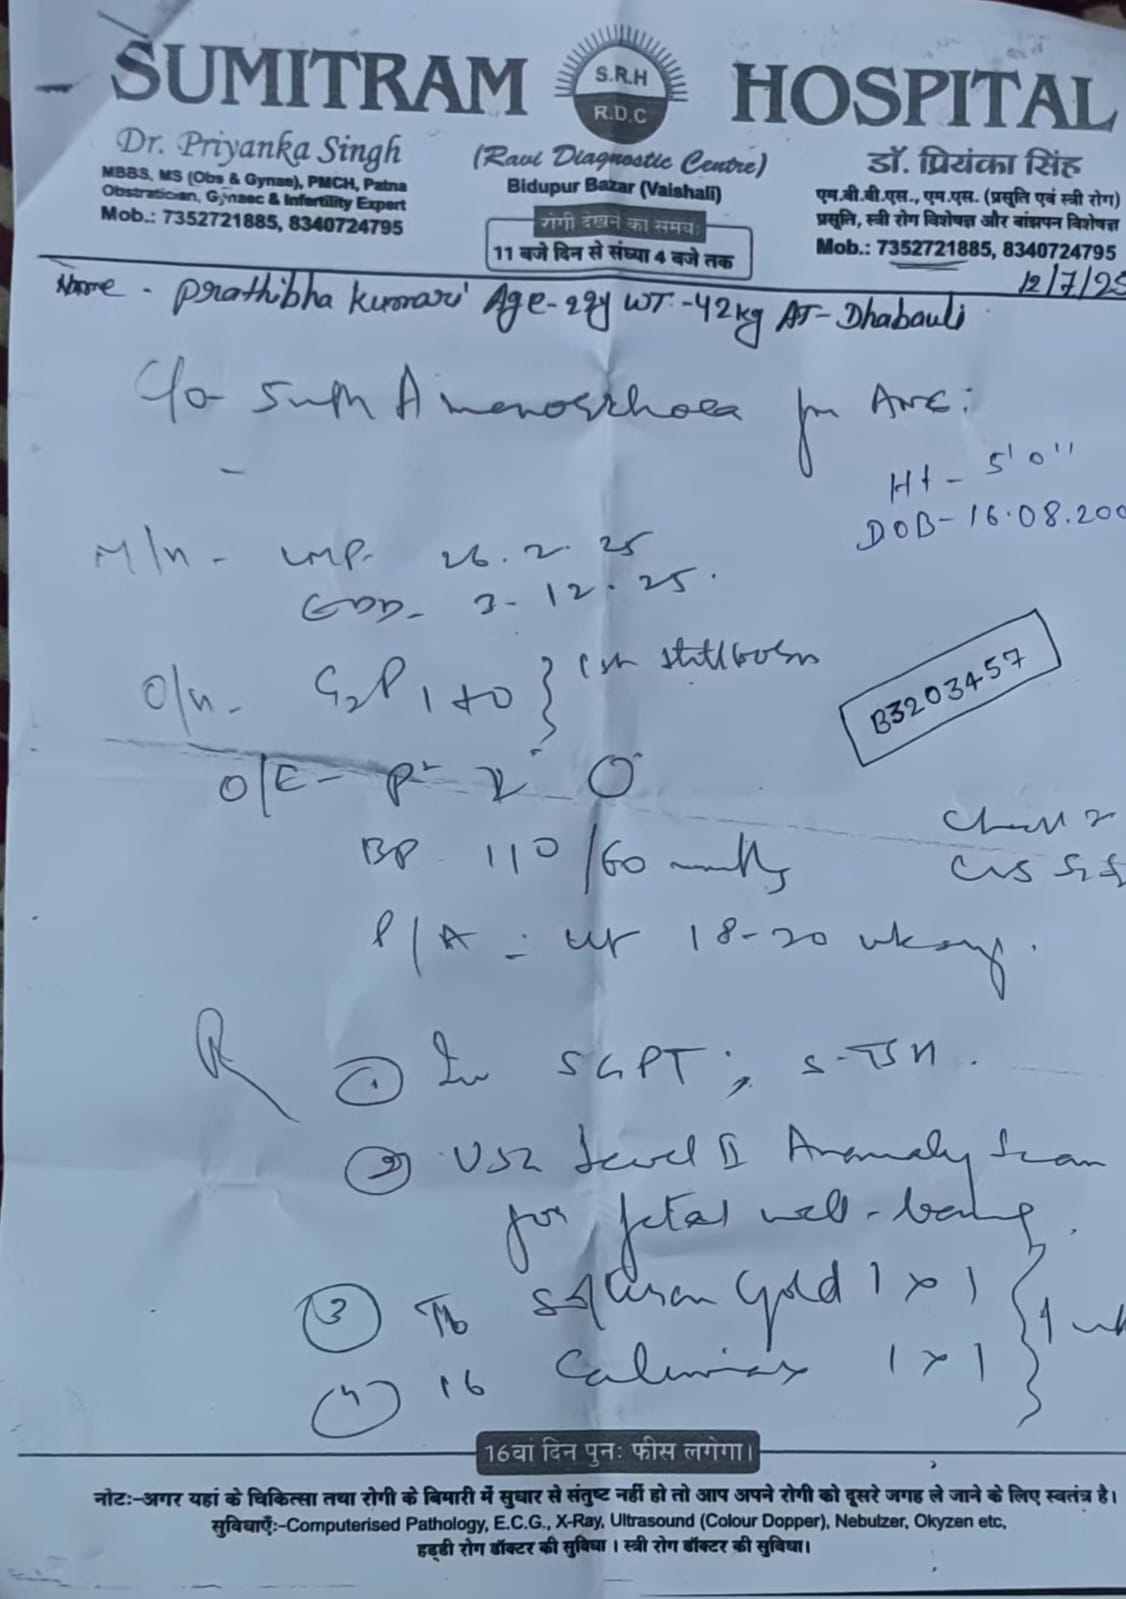 SUMITRAM HOSPITAL
S.R.H
R.D.C
Dr. Priyanka Singh
MBBS, MS (Obs & Gynae), PMCH, Patna
Obstratician, Gynaec & Infertility Expert
Mob.: 7352721885, 8340724795
(Ravi Diagnostic Centre)
Bidupur Bazar (Vaishali)
रोगी देखने का समय:
11 बजे दिन से संध्या 4 बजे तक
डॉ. प्रियंका सिंह
एम.बी.बी.एस., एम.एस. (प्रसुति एवं स्त्री रोग)
प्रसुति, स्त्री रोग विशेषज्ञ और बांझपन विशेषज्ञ
Mob.: 7352721885, 8340724795
12/7/25
Name - Prathibha Kumari Age-22y WT-42kg AT-Dhabauli
C/o- 5mth Amenorrhoea for ANC:
Ht- 5'0"
DOB-16.08.200
M/H - LMP- 26.2.25
EDD- 3-12.25.
O/H- G2P1+0 } Stillborn
B3203457
O/E- P
BP 110/60 mmHg
Chest
CVS
P/A - Ut 18-20 wks
R
① SGPT; S-TSH.
② USG Level II Anomaly Scan
for fetal well-being.
③ Tb Gold 1 x 1
④ Tb 1 x 1
16वां दिन पुनः फीस लगेगा।
नोटः-अगर यहां के चिकित्सा तथा रोगी के बिमारी में सुधार से संतुष्ट नहीं हो तो आप अपने रोगी को दूसरे जगह ले जाने के लिए स्वतंत्र है।
सुविधाएँ:-Computerised Pathology, E.C.G., X-Ray, Ultrasound (Colour Dopper), Nebulzer, Okyzen etc,
हड्डी रोग डॉक्टर की सुविधा। स्त्री रोग डॉक्टर की सुविधा।